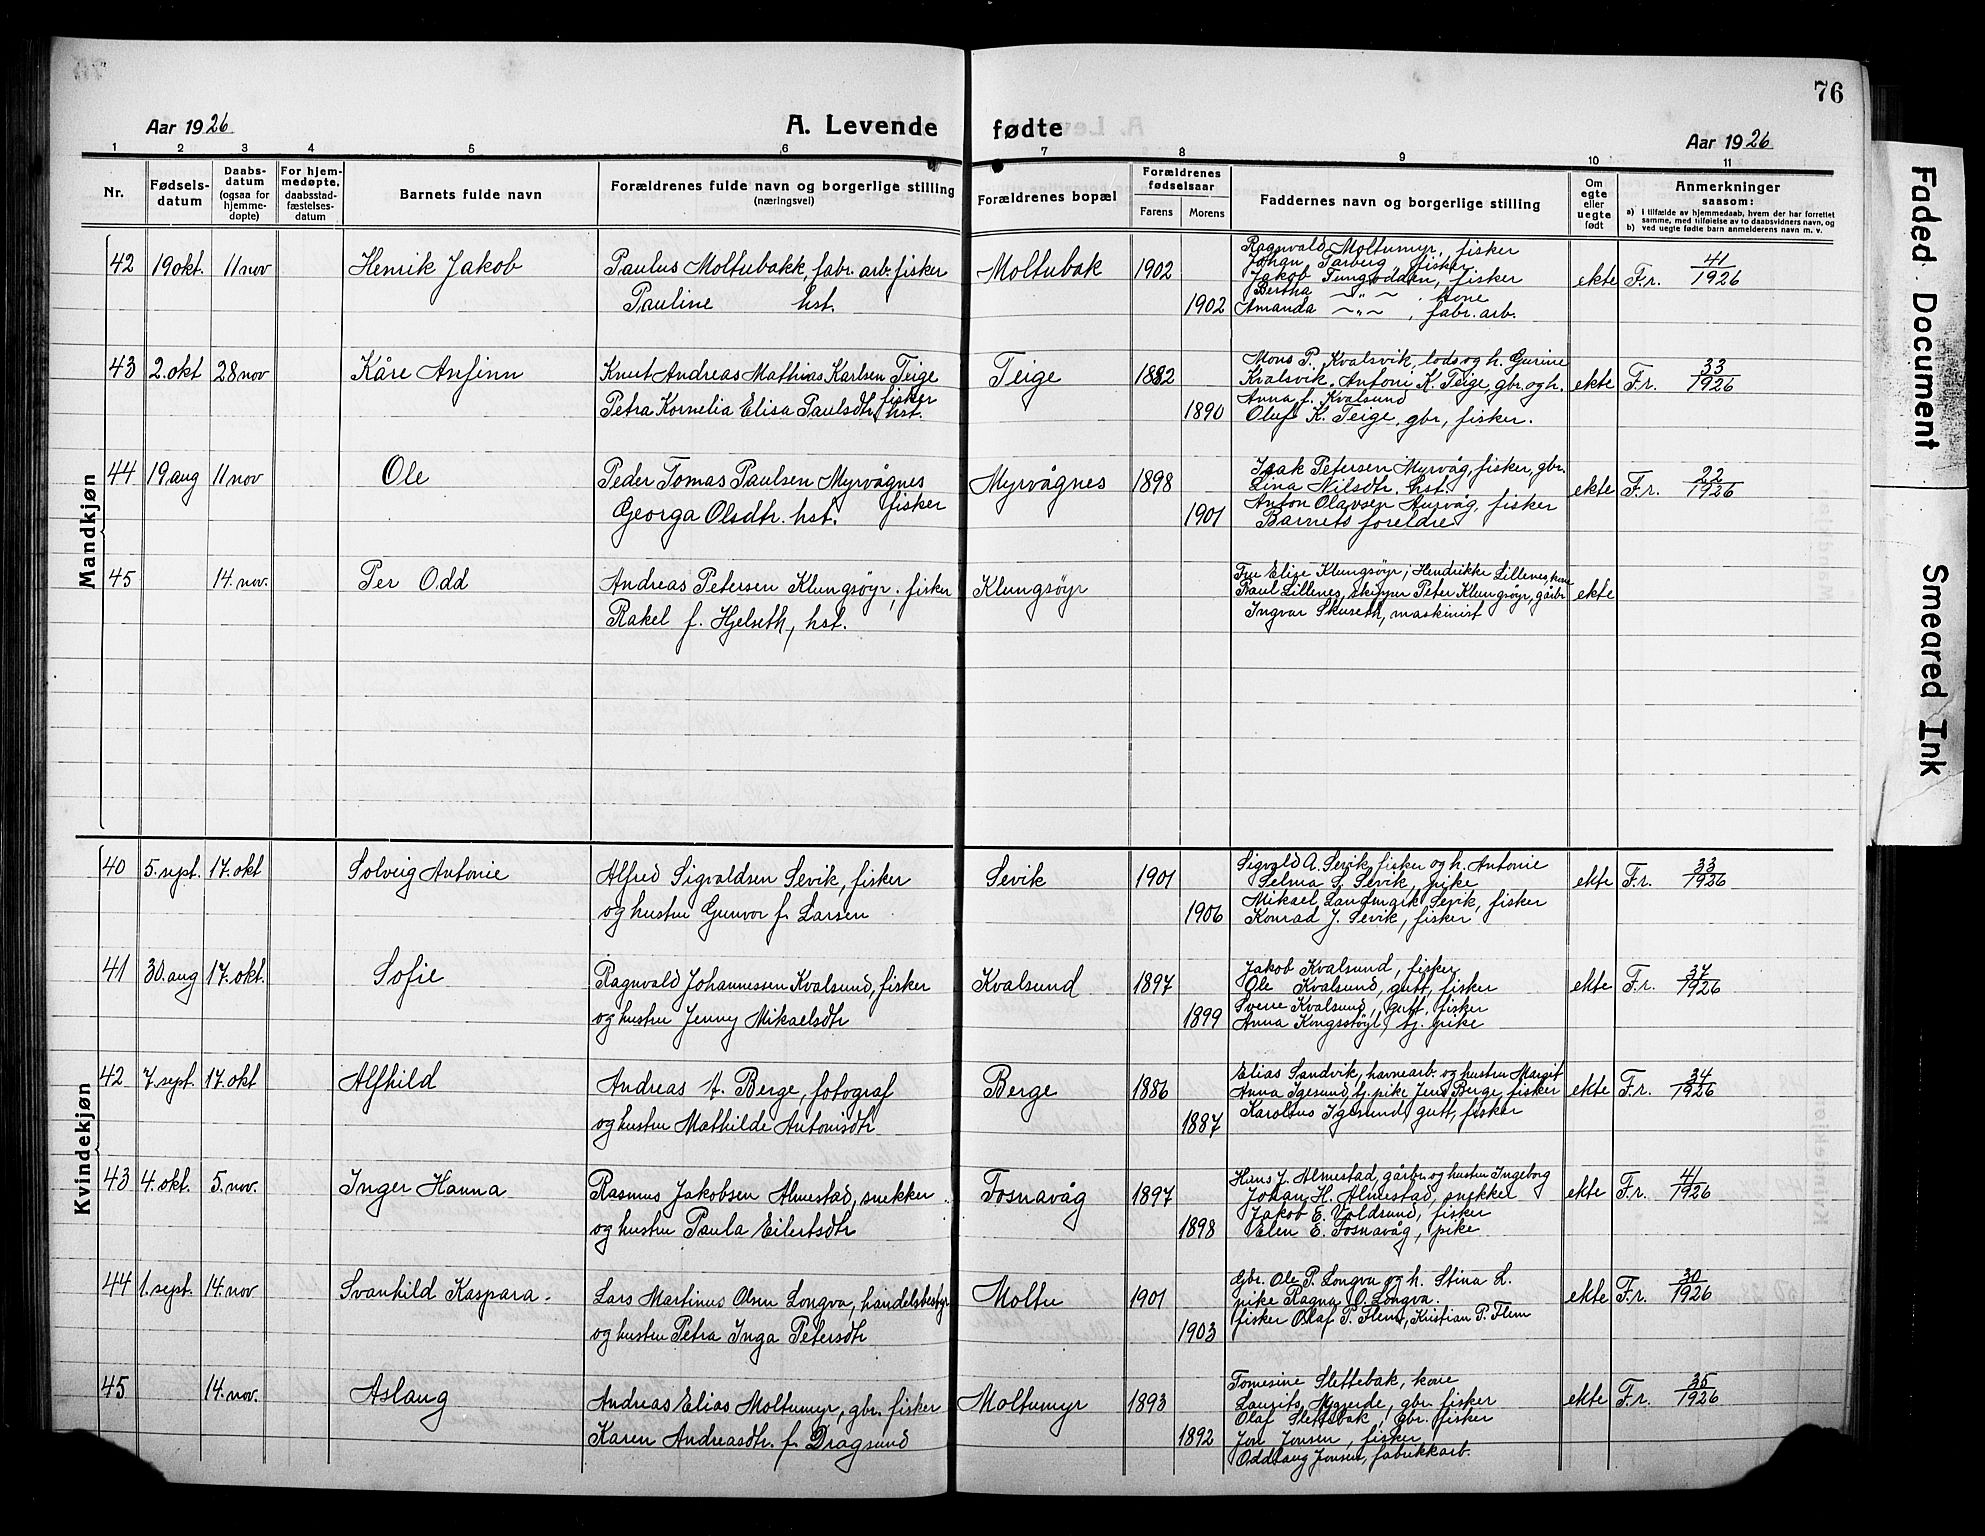 76
Aar 1926
A. Levende fødte
Aar 1926
1 2 3 4 5 6 7 8 9 10 11
Nr.
Fødsels-
datum
Daabs-
datum
(ogsaa for
hjemme-
døpte)
For hjem-
medøpte,
daabsstad-
fæstelses-
datum
Barnets fulde navn
Forældrenes fulde navn og borgerlige stilling
(næringsvei)
Forældrenes bopæl
Forældrenes
fødselsaar
Farens Morens
Faddernes navn og borgerlige stilling
Om
egte
eller
uegte
født
Anmerkninger
saasom:
a) i tilfælde av hjemmedaab, hvem der har forrettet
samme, med tilføielse av to daabsvidners navn, og
b) ved uegte fødte barn anmelderens navn m. v.
Mandkjøn
42 19 okt. 11 nov Henrik Jakob
Paulus Moltubakk, fabr. arb. fisker
Pauline hst.
Moltubak 1902
1902
Ragnvald Moltumyr, fisker
Johan Tarberg, fisker
Jakob Tungodden, fisker
Bertha ~"~, kone
Amanda ~"~, fabr. arb.
ekte F.r. 41/1926
43 2. okt 28 nov Kåre Anfinn
Knut Andreas Mathias Karlsen Teige
fisker
Petra Kornelia Elisa Paulsdtr, hst.
Teige 1882
1890
Mons P. Kvalsvik, lods og h. Gurine
Kvalsvik, Antoni K. Teige, gbr. og h.
Anna f. Kvalsund
Oluf K. Teige, gbr, fisker.
ekte F.r. 33/1926
44 19 aug 11 nov Ole
Peder Tomas Paulsen Myrvågnes
fisker
Georga Olsdtr. hst.
Myrvågnes 1898
1901
Isak Petersen Myrvåg, fisker, gbr.
Lina Nilsdtr. hst.
Anton Olavsen Aurvåg, fisker
Barnets foreldre
ekte F.r. 22/1926
45 14. nov. Per Odd
Andreas Petersen Klungsöyr, fisker
Rakel f. Hjelseth, hst.
Klungsöyr
Fru Elise Klungsöyr, Hendrikke Lillenes, kone
Paul Lillenes, skipper Peter Klungsöyr, gårbr
Ingvar Skuseth, maskinist
ekte
Kvindekjøn
40 5. sept. 17. okt Solveig Antonie
Alfred Sigvaldsen Sevik, fisker
og hustru Gunvor f. Larsen
Sevik 1901
1906
Sigvald A. Sevik, fisker og h. Antonie
Selma S. Sevik, pike
Mikael Landmark Sevik, fisker
Konrad J. Sevik, fisker
ekte F.r. 33/1926
41 30. aug 17. okt. Sofie
Ragnvald Johannessen Kvalsund, fisker
og hustru Jenny Mikaelsdtr
Kvalsund 1897
1899
Jakob Kvalsund, fisker
Ole Kvalsund, gutt, fisker
Sverre Kvalsund, gutt, fisker
Anna tj. pike
ekte F.r. 37/1926
42 7. sept. 17. okt Alfhild
Andreas A. Berge, fotograf
og hustru Mathilde Antonisdtr
Berge 1886
1887
Elias Sandvik, havnearb. og hustru Margit
Anna Igesund, tj. pike Jens Berge, fisker
Karolus Igesund, gutt, fisker
ekte F.r. 34/1926
43 4. okt. 5. nov. Inger Hanna
Rasmus Jakobsen Almestad, snekker
og hustru Paula Eilertsdtr
Fosnavåg 1897
1898
Hans J. Almestad, gårbr. og hustru Ingeborg
Johan H. Almestad, snekker
Jakob E. Voldsund, fisker
Elen E. Fosnavåg, pike
ekte F.r. 41/1926
44 1. sept. 14. nov Svanhild Kaspara
Lars Martinus Olsen Longva, handelsbestyr
og hustru Petra Inga Petersdtr
Moltu 1901
1903
Gbr. Ole P. Longva og h. Stina L.
pike Ragna O. Longva.
fisker Olaf P. Flem, Kristian P. Flem
ekte F.r. 30/1926
45 14. nov. Aslaug
Andreas Elias Moltumyr, gbr. fisker
Karen Andreasdtr. f. Dragsund
Moltumyr 1893
1892
Tomesine Slettebak, kone
Laurits Myrerde, gbr. fisker
Olaf Slettebak, Gbr. fisker
Jon Jonsen, fisker
Oddlaug Jonsen, fabrikkarb.
ekte F.r. 35/1926
Faded Document
Smeared Ink